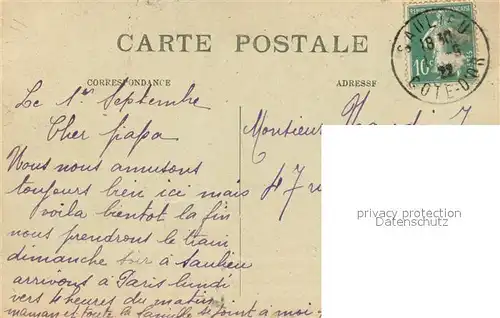 CARTE POSTALE
CORRESPONDANCE
ADRESSE
SAULIEU
18 30
22
COTE-D'OR
10c
POSTES
Le 1er Septembre
Cher papa
Nous nous amusons
toujours bien ici mais
voila bientot la fin
nous prendrons le train
dimanche soir à Saulieu
arrivons à Paris lundi
vers 4 heures du matin
maman et toute la famille se joint à moi -
Monsieur
47 r
privacy protection
Datenschutz